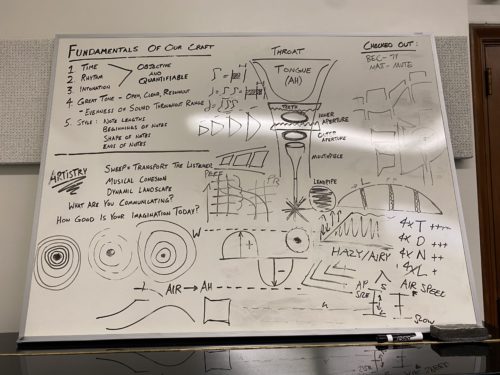 FUNDAMENTALS OF OUR CRAFT
1 TIME
2 RHYTHM
3 INTONATION
OBJECTIVE
AND
QUANTIFIABLE
4 GREAT TONE - OPEN, CLEAR, RESONANT
- EVENNESS OF SOUND THROUGHOUT RANGE
5. STYLE: NOTE LENGTHS
BEGINNINGS OF NOTES
SHAPE OF NOTES
ENDS OF NOTES
ARTISTRY
SWEEP = TRANSPORT THE LISTENER
MUSICAL COHESION
DYNAMIC LANDSCAPE
WHAT ARE YOU COMMUNICATING?
HOW GOOD IS YOUR IMAGINATION TODAY?
THROAT
TONGUE
(AH)
TEETH
INNER
APERTURE
OUTER
APERTURE
MOUTHPIECE
LEADPIPE
CHECKED OUT:
MAT - MUTE
W
+
-
HAZY/AIRY
4x T ++++
4x D +++
4x N ++
4x L +
AIR → AH
AP
SIZE
AIR SPEED
SLOW